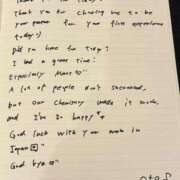 Thank you for choosing me to be
your partner for your first experience
today :)
Did you have fun today?
I had a great time!
Especially
A lot of people don't
but our chemistry made it work,
and I'm so happy
Good luck with your work in
Japan
Good bye